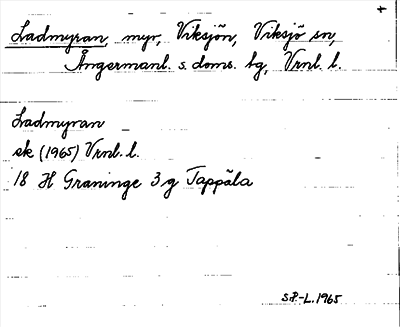 Ladmyran, myr, Viksjön, Viksjö sn,
Ångermanl. s. doms. bg, Vrnl. l.
Ladmyran
ek (1965) Vrnl. l.
18 H Graninge 3 g Tappåla
S.P.-L. 1965